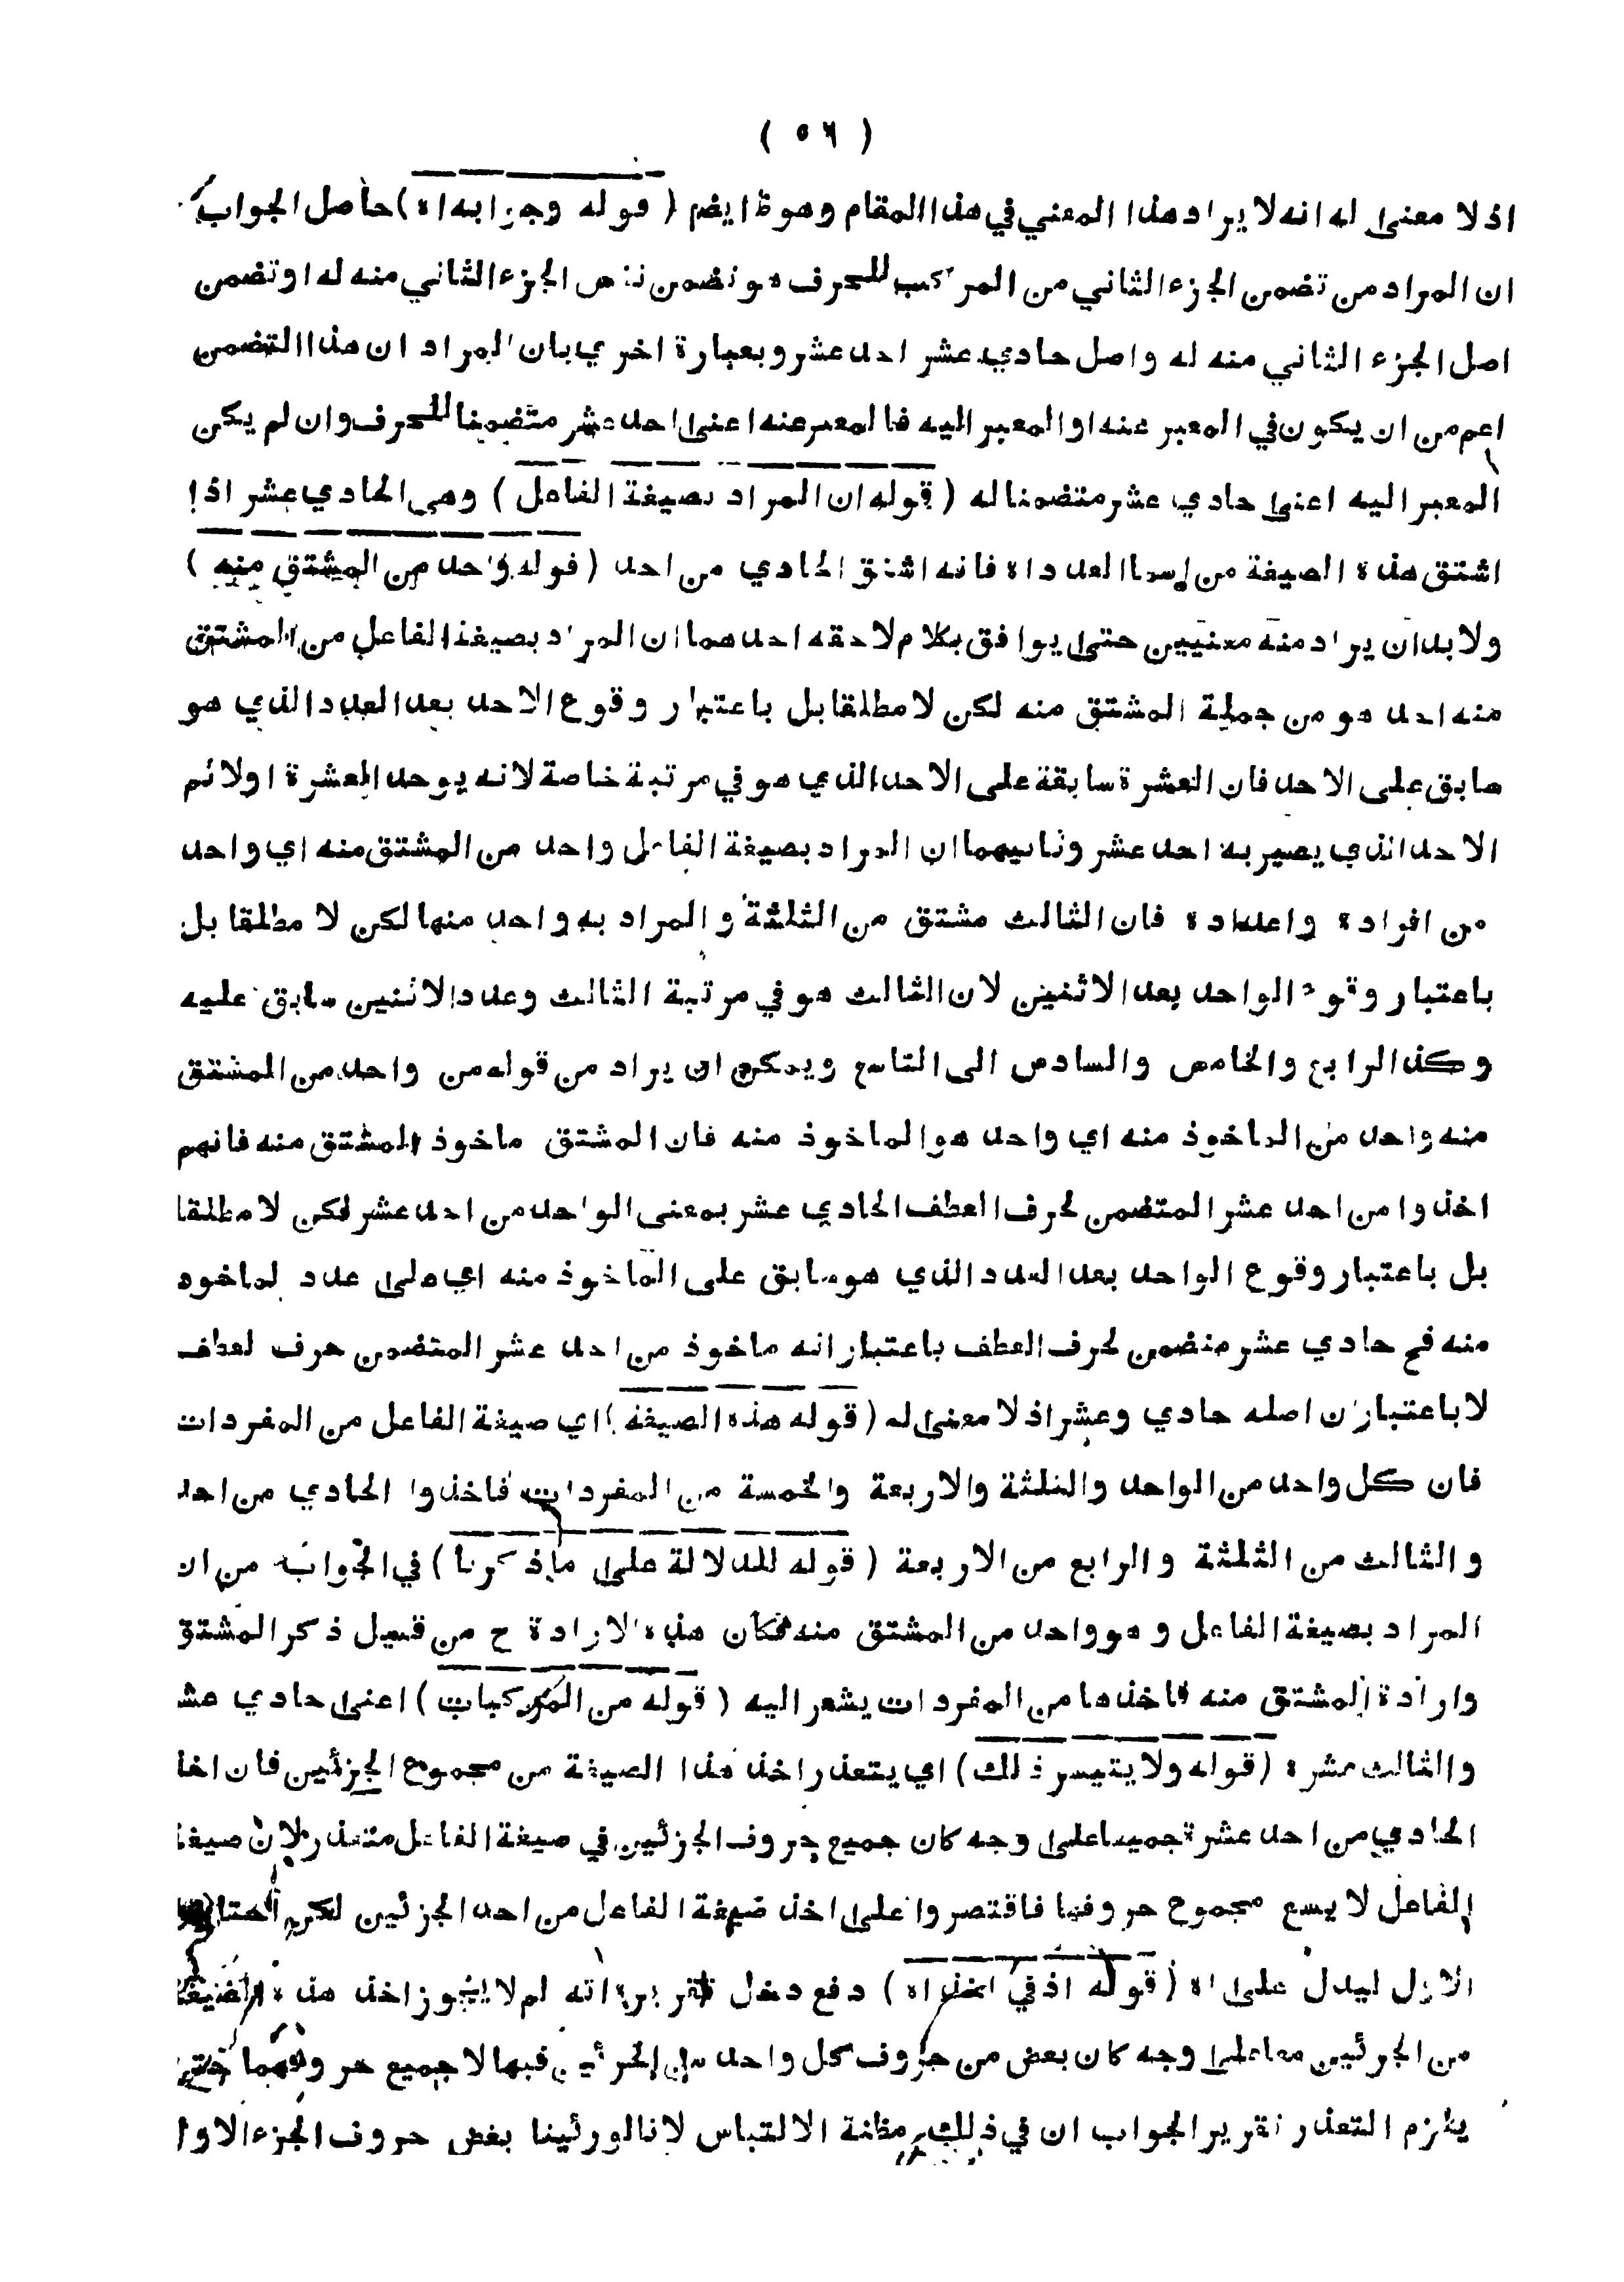 ( ٥٦ )
اذ لا معنى له انه لا يراد هذا المعني في هذا المقام وهو ظ ايضم ( قوله وجزابه اه ) حاصل الجواب
ان المراد من تضمن الجزء الثاني من المركب للحرف هو تضمن نفس الجزء الثاني منه له او تضمن
اصل الجزء الثاني منه له واصل حادي عشر احد عشر وبعبارة اخري بان المراد ان هذا التضمن
اعم من ان يكون في المعبر عنه او المعبر اليه فالمعبر عنه اعنى احد عشر متضمنا للحرف وان لم يكن
المعبر اليه اعنى حادي عشر متضمنا له ( قوله ان المراد بصيغة الفاعل ) وهى الحادي عشر اذا
اشتق هذه الصيغة من اسماا لعدد اه فانه اشتق الحادي من احد ( قوله واحد من المشتق منه )
ولابد ان يراد منه معنيين حتى يوافق بكلام لاحقه احدهما ان المراد بصيغة الفاعل من المشتق
منه احد هو من جملة المشتق منه لكن لا مطلقا بل باعتبار وقوع الاحد بعد العدد الذي هو
سابق على الاحد فان العشرة سابقة على الاحد الذي هو في مرتبة خاصة لانه يوحد العشرة اولا ثم
الاحد الذي يصير به احد عشر وثانيهما ان المراد بصيغة الفاعل واحد من المشتق منه اي واحد
من افراده واعداده فان الثالث مشتق من الثلثة والمراد به واحد منها لكن لا مطلقا بل
باعتبار وقوع الواحد بعد الاثنين لان الثالث هو في مرتبة الثالث وعدد الاثنين سابق عليه
وكذ الرابع والخامس والسادس الى التاسع ويمكن ان يراد من قوله من واحد من المشتق
منه واحد من الماخوذ منه اي واحد هو الماخوذ منه فان المشتق ماخوذ المشتق منه فانهم
اخذوا من احد عشر المتضمن لحرف العطف الحادي عشر بمعنى الواحد من احد عشر لكن لا مطلقا
بل باعتبار وقوع الواحد بعد العدد الذي هو سابق على الماخوذ منه اي على عدد لماخوذ
منه فح حادي عشر متضمن لحرف العطف باعتبار انه ماخوذ من احد عشر المتضمن حرف لعطف
لا باعتبار ن اصله حادي وعشر اذ لا معنى له ( قوله هذه الصيغة ) اي صيغة الفاعل من المفردات
فان كل واحد من الواحد والثلثة والاربعة والخمسة من المفردات فاخذوا الحادي من احد
والثالث من الثلثة والرابع من الاربعة ( قوله للدلالة على ماذكرنا ) في الجواب من ان
المراد بصيغة الفاعل وهو واحد من المشتق منه فكان هذه الارادة ح من قبيل ذكر المشتق
وارادة المشتق منه فاخذها من المفردات يشعر اليه ( قوله من المركبات ) اعنى حادي عشر
والثالث عشره ( قوله ولا يتيسر ذلك ) اي يتعذر اخذ هذا الصيغة من مجموع الجزئين فان اخذ
الحادي من احد عشرة جميعا على وجه كان جميع حروف الجزئين في صيغة الفاعل متعذر لان صيغة
الفاعل لا يسع مجموع حروفها فاقتصروا على اخذ صيغة الفاعل من احد الجزئين لكن
الاول ليدل على اه ( قوله اذ في اخذ اه ) دفع دخل تقريره انه لم لا يجوز اخذ هذه الصيغة
من الجزئين معا على وجه كان بعض من حروف كل واحد من الجزئين فيها لا جميع حروفهما حتى
يلزم التعذر تقرير الجواب ان في ذلك مظنة الالتباس لانا لو رئينا بعض حروف الجزء الاول